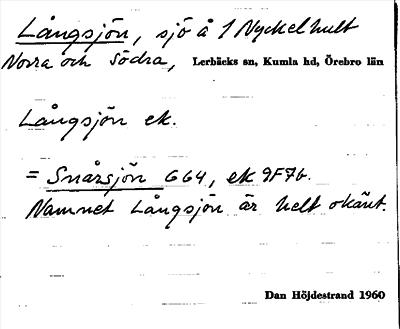 Långsjön, sjö å 1 Nyckelhult
Norra och Södra, Lerbäcks sn, Kumla hd, Örebro län
Långsjön ek.
= Snårsjön G64, ek 9F7b.
Namnet Långsjön är helt okänt.
Dan Höjdestrand 1960